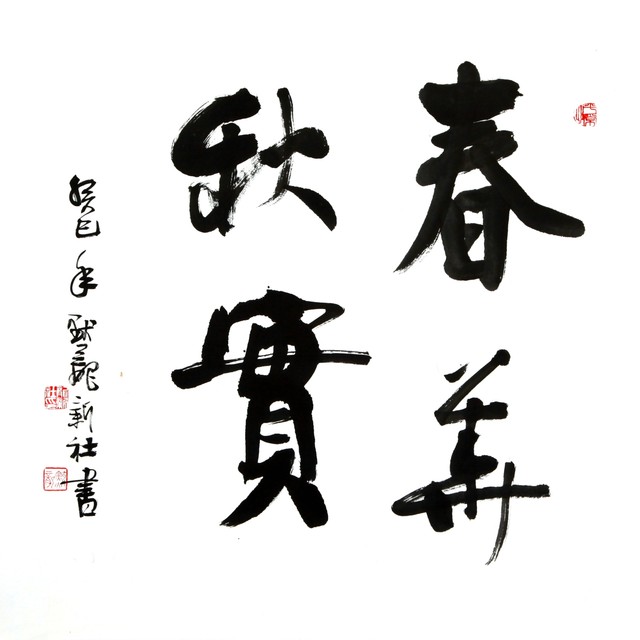 春華
秋實
癸巳年默龕新社書